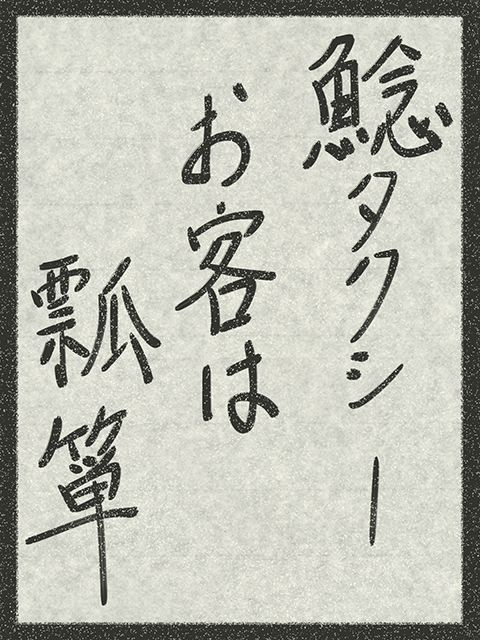 鯰タクシー
お客は
瓢箪